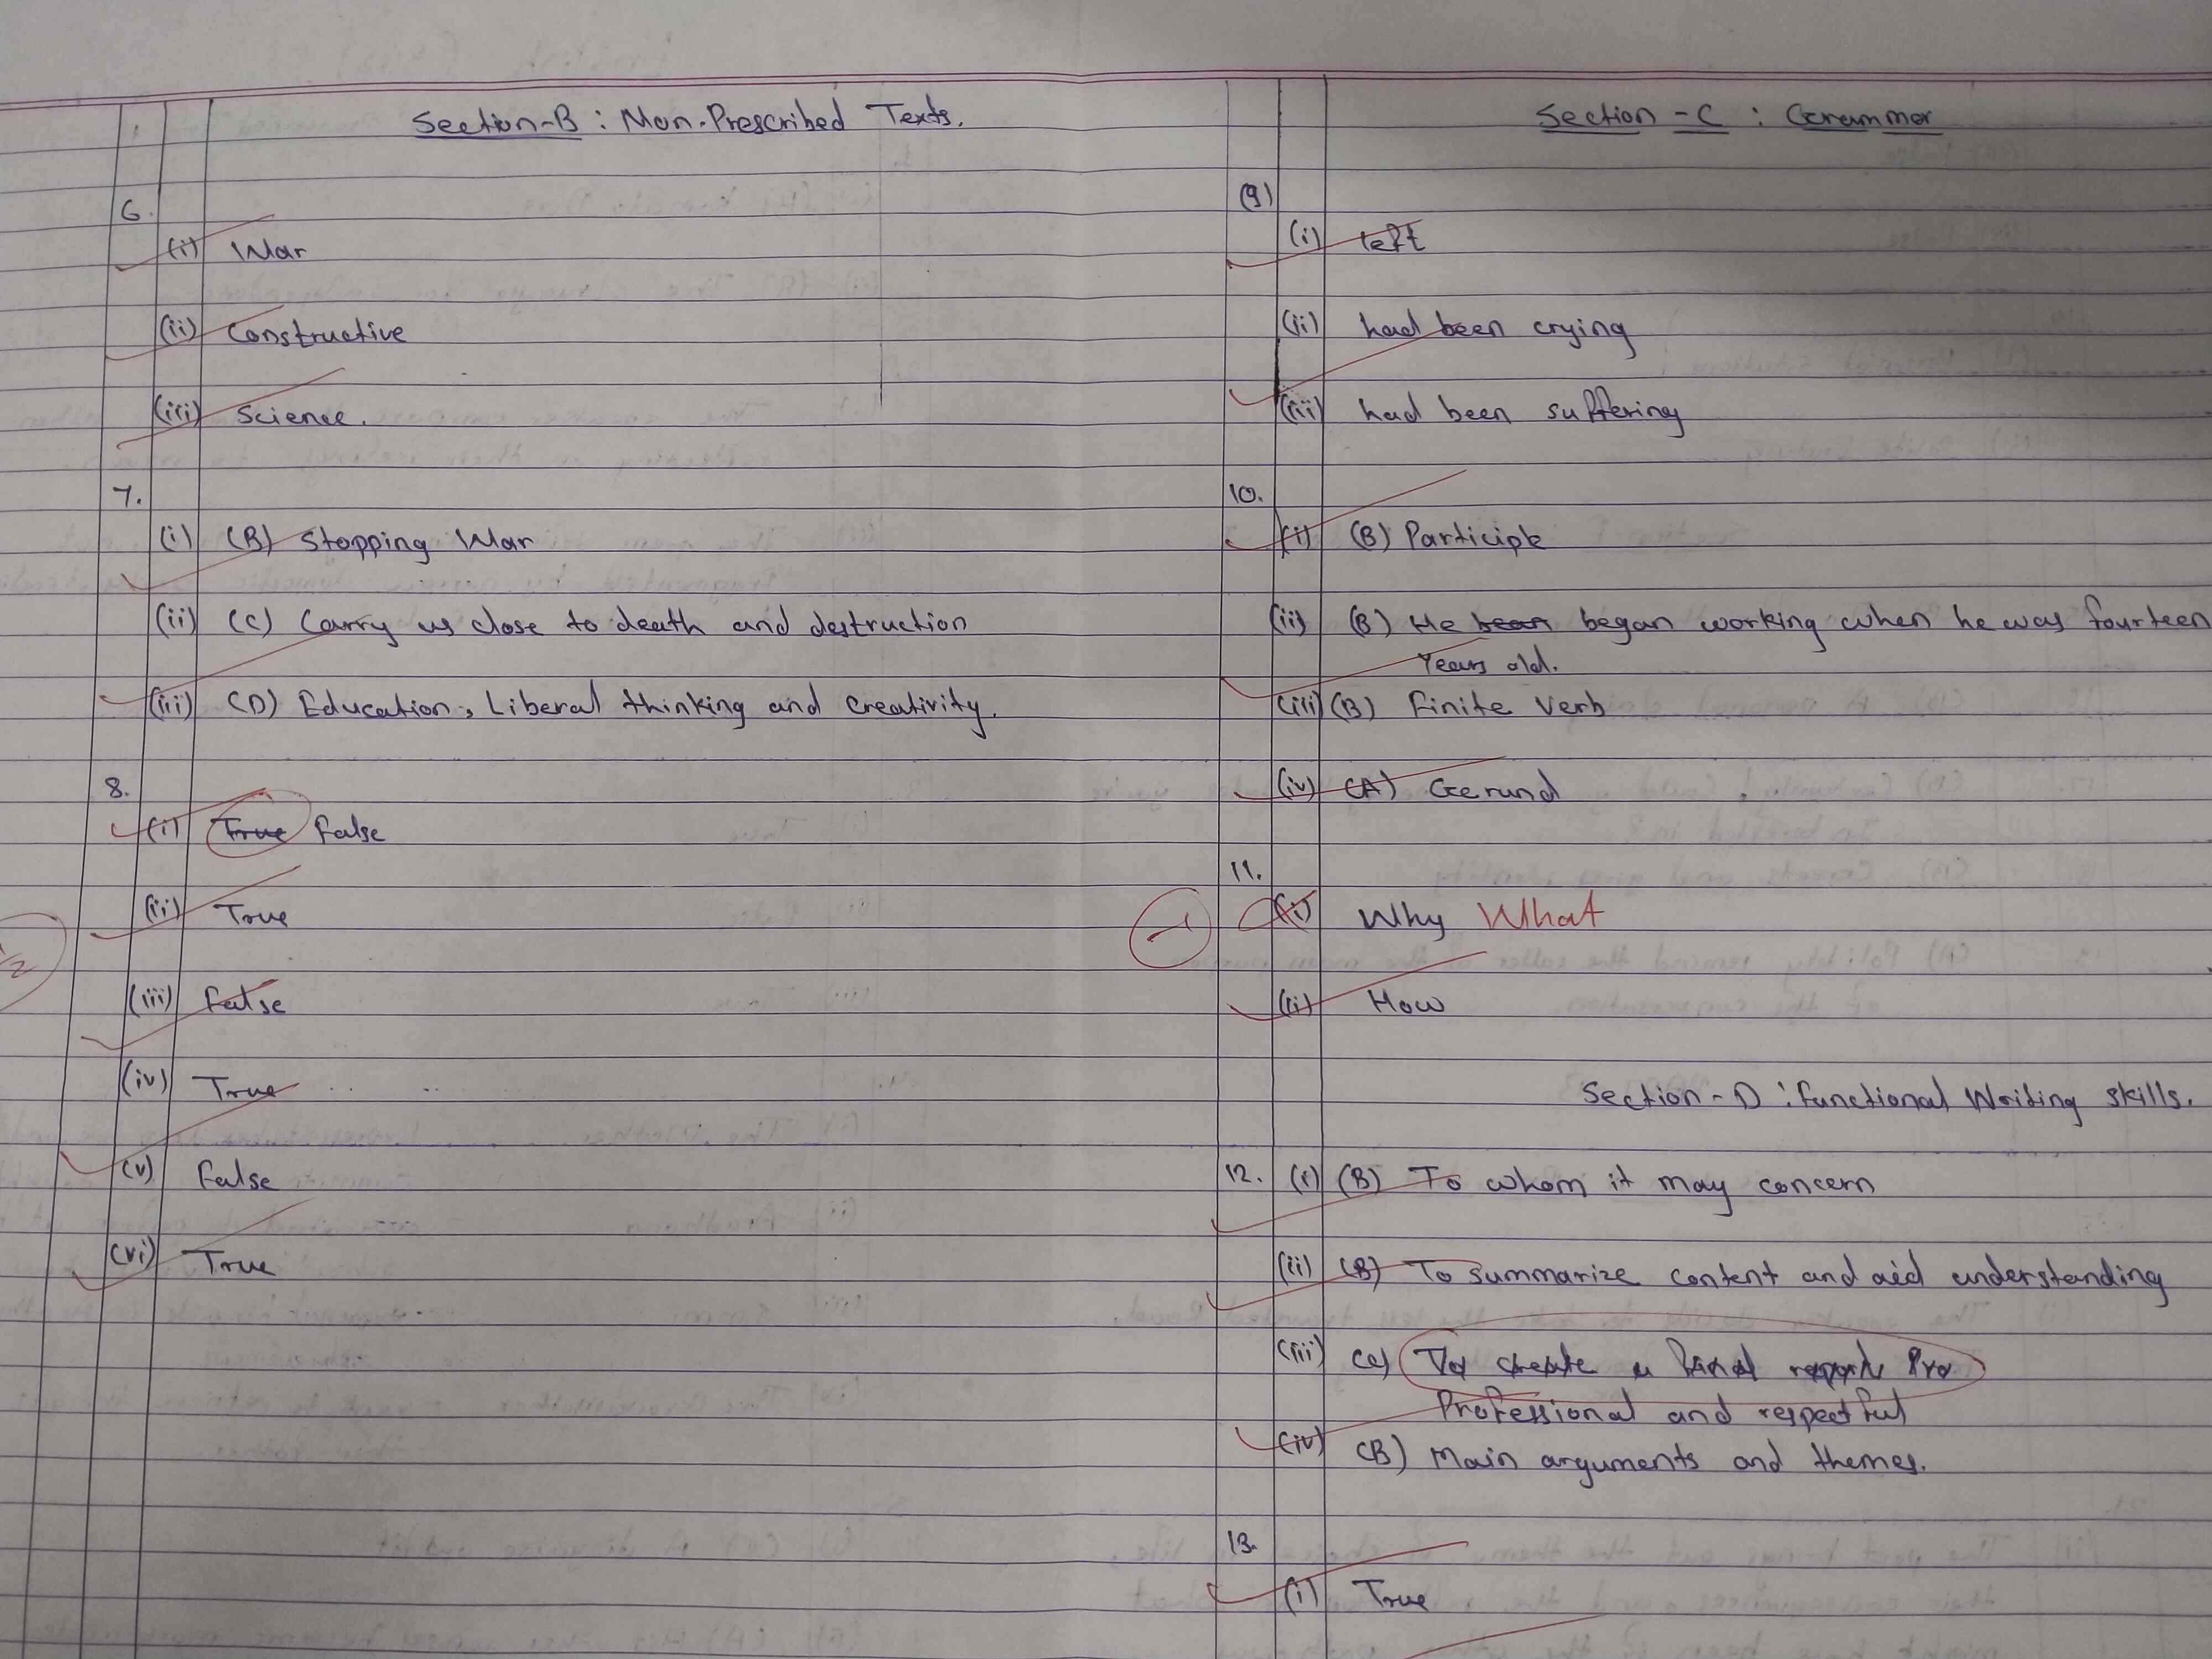 Section-B : Non-Prescribed Texts.
6.
(i) War
(ii) Constructive
(iii) Science.
7.
(i) (B) Stopping War
(ii) (C) Carry us close to death and destruction
(iii) (D) Education, Liberal thinking and Creativity.
8.
(i) True False
(ii) True
(iii) False
(iv) True
(v) False
(vi) True
Section - C : Grammer
(9)
(i) left
(ii) had been crying
(iii) had been suffering
10.
(i) (B) Participle
(ii) (B) He began working when he was fourteen
Years old.
(iii) (B) Finite Verb
(iv) (A) Gerund
11.
(i) Why What
(ii) How
Section - D : Functional Writing skills.
12. (i) (B) To whom it may concern
(ii) (B) To summarize content and aid understanding
(iii) (C) To create a final report Pro
Professional and respectful
(iv) (B) Main arguments and themes.
13.
(i) True